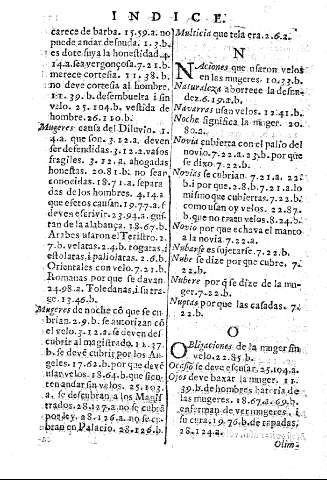 INDICE.
carece de barba. 15.59.a. no
puede andar desnuda. 1.3.b.
es dote suya la honestidad. 4.
14.a. sea vergonçosa. 7.21.b.
merece cortesia. 11.38.b.
no deve cortesia al hombre.
1.1.39.b. desembuelta i sin
velo. 25.104.b. vestida de
hombre. 26.110.b.
Mugeres causa del Diluvio. 1.
4.a. que son. 3.12.a. deven
ser defendidas. 3.12.a. vasos
fragiles. 3.12.a. ahogadas
honestas. 20.81.b. no sean
conocidas. 18.71.a. separa
das de los hombres. 4.14.a
que efetos causan. 19.77.a. si
deves escrivir. 23.94.a. gus-
tan de la alabança. 18.67.b.
Arabes usaron el Teristro. 2.
7.b. velatas. 2.4.b. togatas, i
estolatas, i palioiatas. 2.6.b.
Orientales con velo. 7.21.b.
Romanas por que se davan
24.98.a. Toledanas, i su tra-
ge. 13.46.b.
Mugeres de noche cō que se en-
brian. 2.9.b. se autorizan cō
el velo. 3.12.a. se deven des
cubrir al magistrado. 11.37.
b. se deve cubrir por los An-
geles. 17.62.b. por que deve
usar velos. 18.64.b. que sien-
ten andar sin velos. 25.103.
a. se descubran a los Magis
trados. 28.127.a. no se cubrā
por ley. 28.126.a. no se cu-
bran en Palacio. 28.126.b.
Multicia que tela era. 2.6.a.
N
NAciones que usaron velos
en las mugeres. 10.33.b.
Naturaleza aborrece la desnu-
dez. 6.19.a.b.
Navarras usan velos. 12.41.b.
Noche significa la muger. 20.
80.a.
Novia cubierta con el palio del
novio. 7.22.a. 23.b. por que
se dixo. 7.22.b.
Novias se cubrian. 7.21.a. 22
b. i por que. 2.8.b. 7.21.a. lo
mismo que cubiertas. 7.22.b.
como usan oy velos. 22.87.
b. que no traen velos. 8.24.b.
Novio por que echava el manto
a la novia. 7.22.a.
Nubarse es sujetarse. 7.22.b.
Nube se dize por que cubre. 7.
22.b.
Nubere por q̄ se dize de la mu-
ger. 7.22.b.
Nuptas por que las casadas. 7.
22.b.
O
OBligaciones de la muger sin
velo. 22.85.b.
Ocasō se deve escusar. 25.104.a.
Ojos deve baxar la muger. 11.
39.b. de hombres bateria de
las mugeres. 18.67.a. 69.b.
enferman de ver mugeres, i
su cura. 19.76.b. de rapadas,
28.124.a.
Olim-